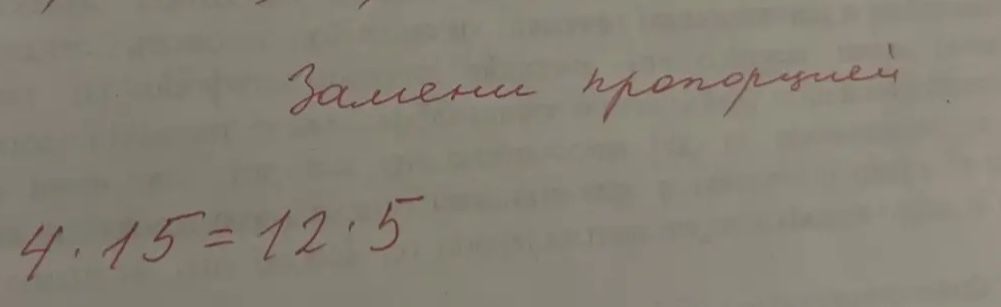 Замени пропорцией
4 · 15 = 12 · 5